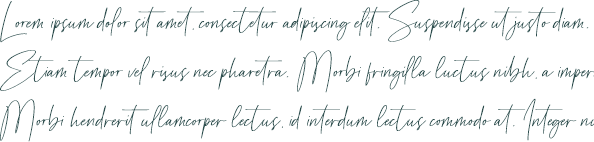 Lorem ipsum dolor sit amet, consectetur adipiscing elit. Suspendisse ut justo diam.
Etiam tempor vel risus nec pharetra. Morbi fringilla luctus nibh, a imper
Morbi hendrerit ullamcorper lectus, id interdum lectus commodo at. Integer